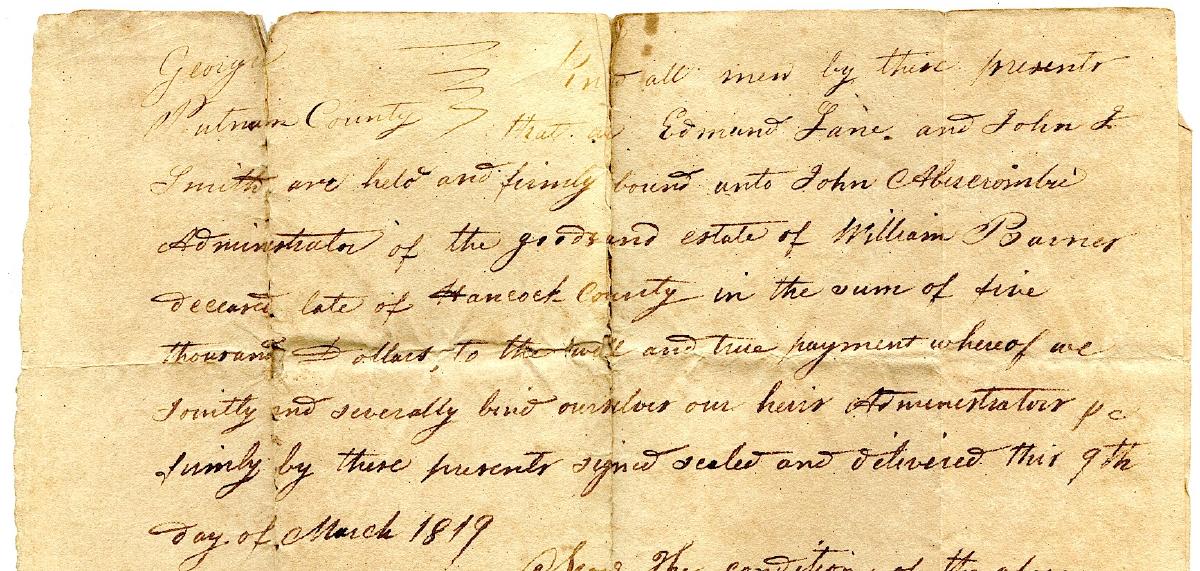 Georgi
Putnam County
Know all men by these presents
that we Edmund Lane. and John J.
Smith are held and firmly bound unto John Abercrombie
Administrator of the goods and estate of William Barnes
deceasd. late of Hancock County in the sum of five
thousand Dollars, to the well and true payment whereof we
Jointly and severally bind ourselves our heirs Administrators
firmly by these presents signed sealed and delivered this 9th
day of March 1819
The condition of the